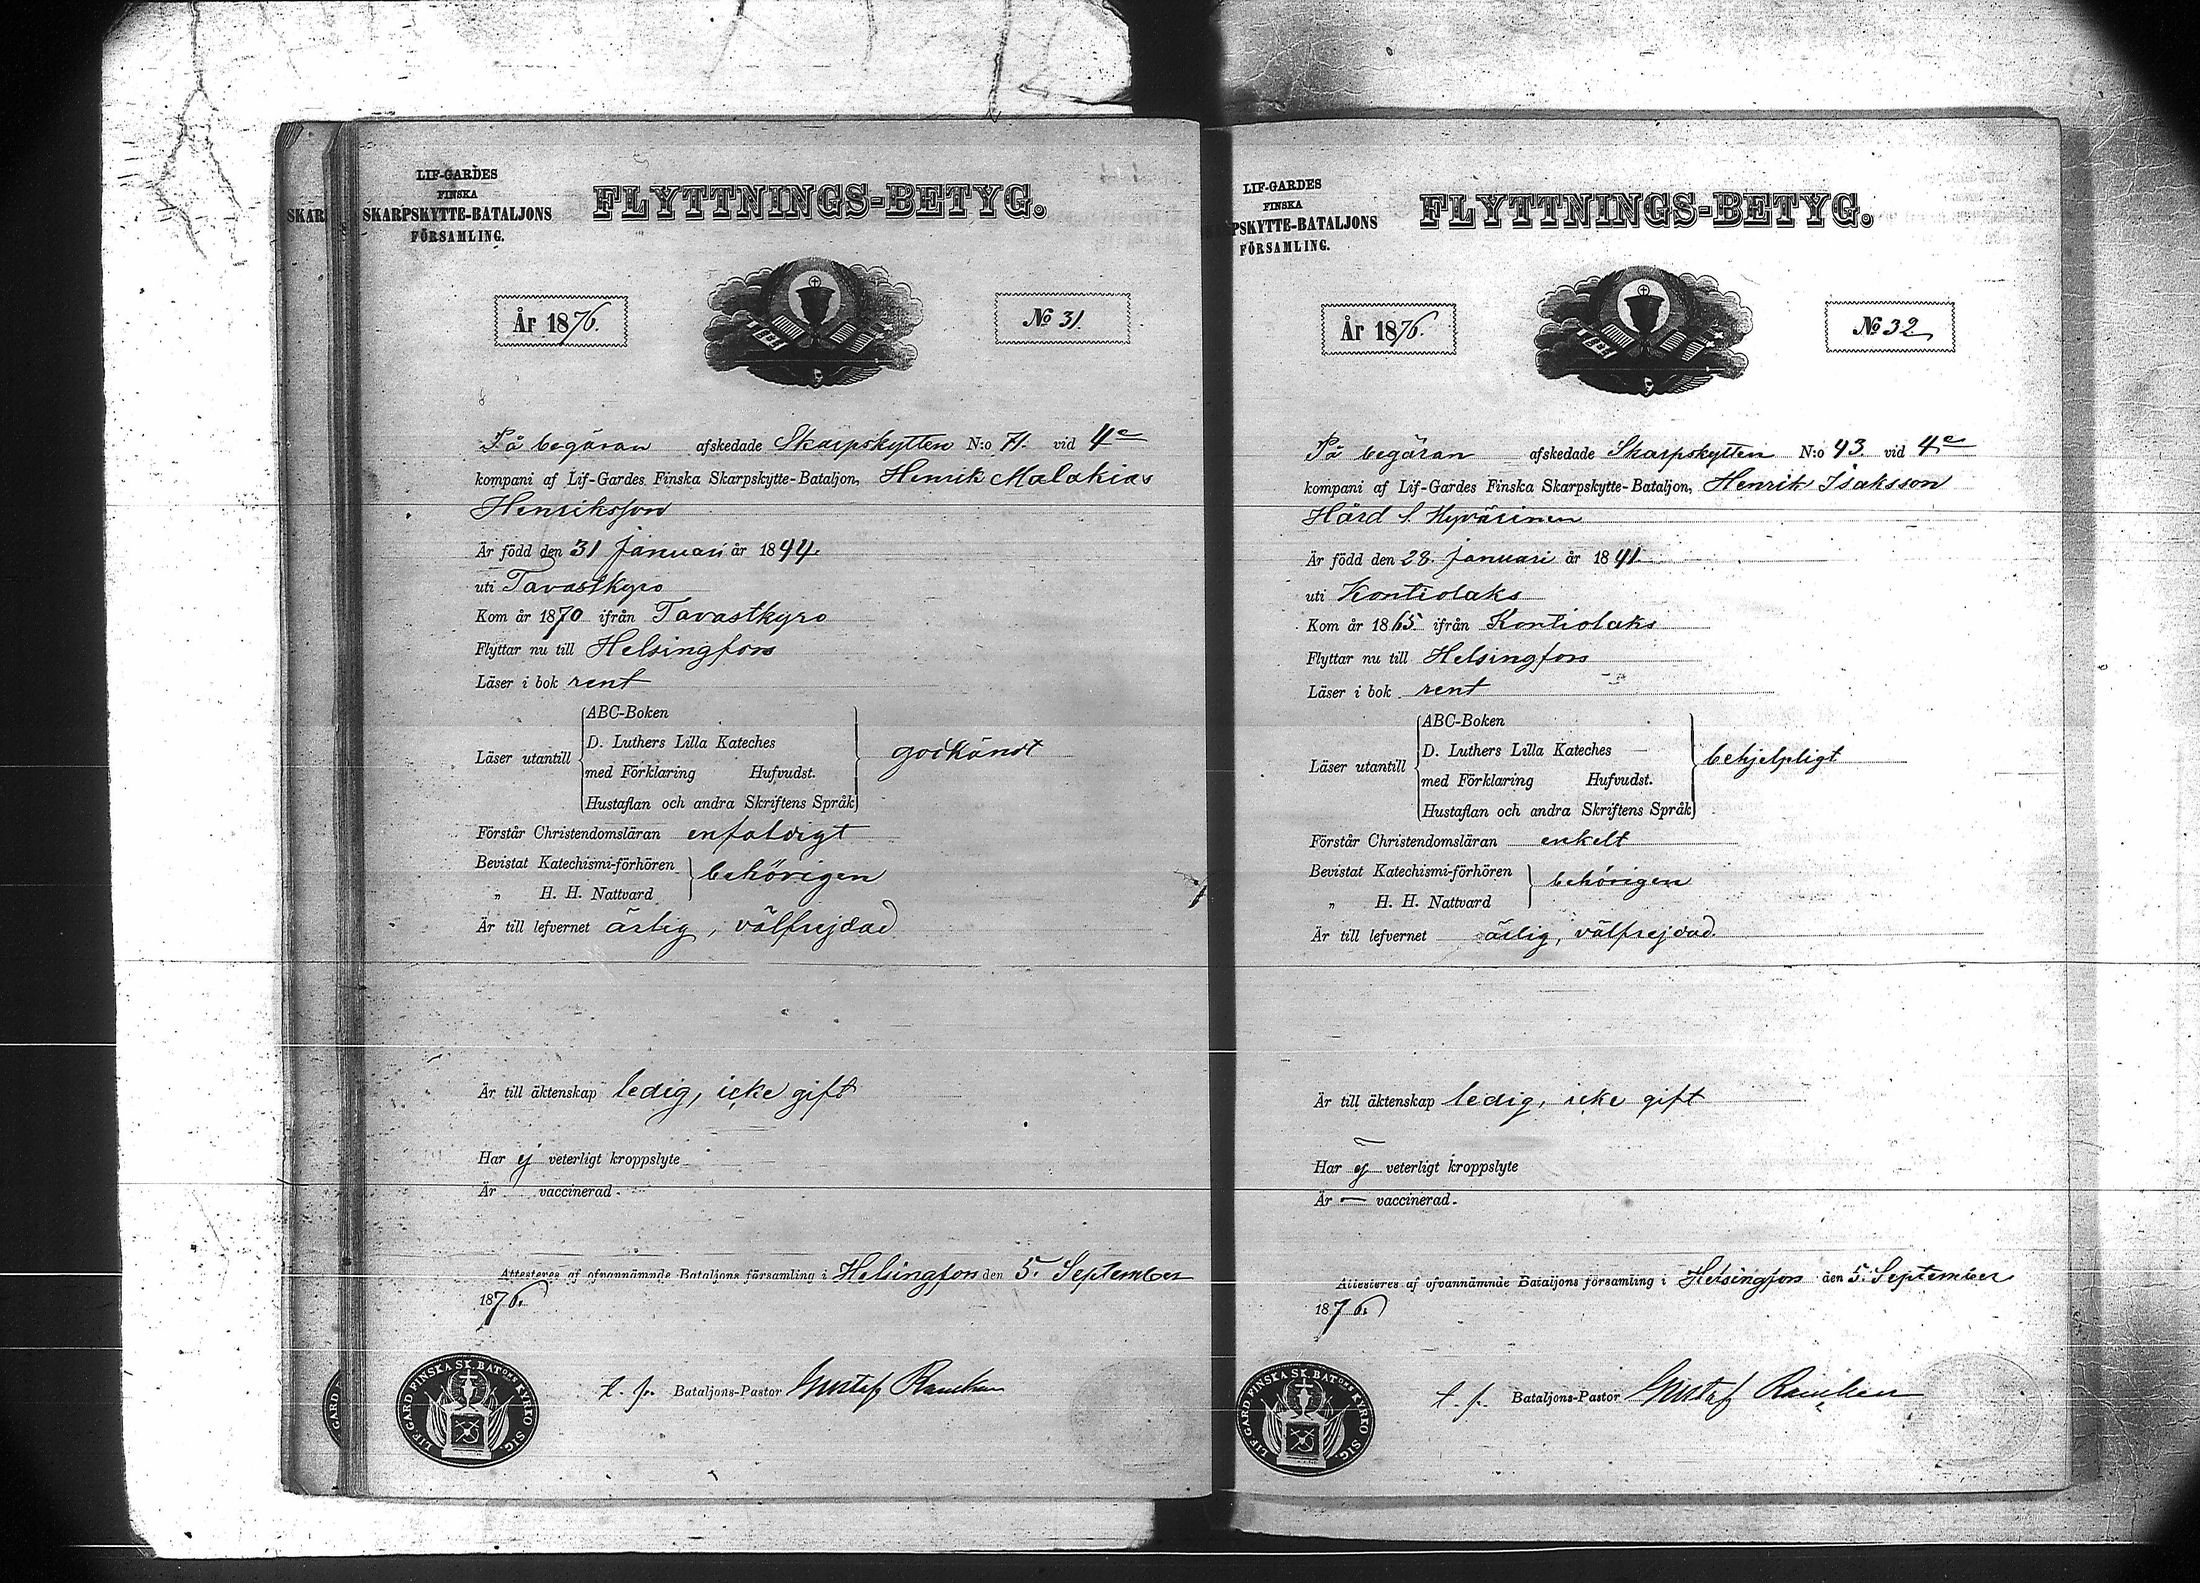 LIF-GARDES
FINSKA
SKARPSKYTTE-BATALJONS
FÖRSAMLING.
FLYTTNINGS-BETYG.
År 1876.
No 31.
På begäran afskedade Skarpskytten N:o 71. vid 4e
kompani af Lif-Gardes Finska Skarpskytte-Bataljon, Henrik Malakias
Henriksson
Är född den 31 Januari år 1844.
uti Tavastkyro
Kom år 1870 ifrån Tavastkyro
Flyttar nu till Helsingfors
Läser i bok rent
ABC-Boken
D. Luthers Lilla Kateches
Läser utantill godkändt
med Förklaring Hufvudst.
Hustaflan och andra Skriftens Språk
Förstår Christendomsläran enfaldigt
Bevistat Katechismi-förhören behörigen
„ H. H. Nattvard
Är till lefvernet ärlig, välfrejdad
Är till äktenskap ledig, icke gift
Har ej veterligt kroppslyte
Är vaccinerad.
Attesteras af ofvannämnde Bataljons församling i Helsingfors den 5. September
1876.
t. f. Bataljons-Pastor Gustaf
LIF-GARD FINSKA SK. BATONS KYRKO SIG.
LIF-GARDES
FINSKA
PSKYTTE-BATALJONS
FÖRSAMLING.
FLYTTNINGS-BETYG.
År 1876.
No 32
På begäran afskedade Skarpskytten N:o 43. vid 4e
kompani af Lif-Gardes Finska Skarpskytte-Bataljon, Henrik Isaksson
Hård f. Hyvärinen
Är född den 28. Januari år 1841.
uti Kontiolaks
Kom år 1865. ifrån Kontiolaks
Flyttar nu till Helsingfors
Läser i bok rent
ABC-Boken
D. Luthers Lilla Kateches
Läser utantill behjelpligt
med Förklaring Hufvudst.
Hustaflan och andra Skriftens Språk
Förstår Christendomsläran enkelt
Bevistat Katechismi-förhören behörigen
„ H. H. Nattvard
Är till lefvernet ärlig, välfrejdad.
Är till äktenskap ledig, icke gift
Har ej veterligt kroppslyte
Är — vaccinerad.
Attesteras af ofvannämnde Bataljons församling i Helsingfors den 5. September
1876.
t. f. Bataljons-Pastor Gustaf
LIF-GARD FINSKA SK. BATONS KYRKO SIG.